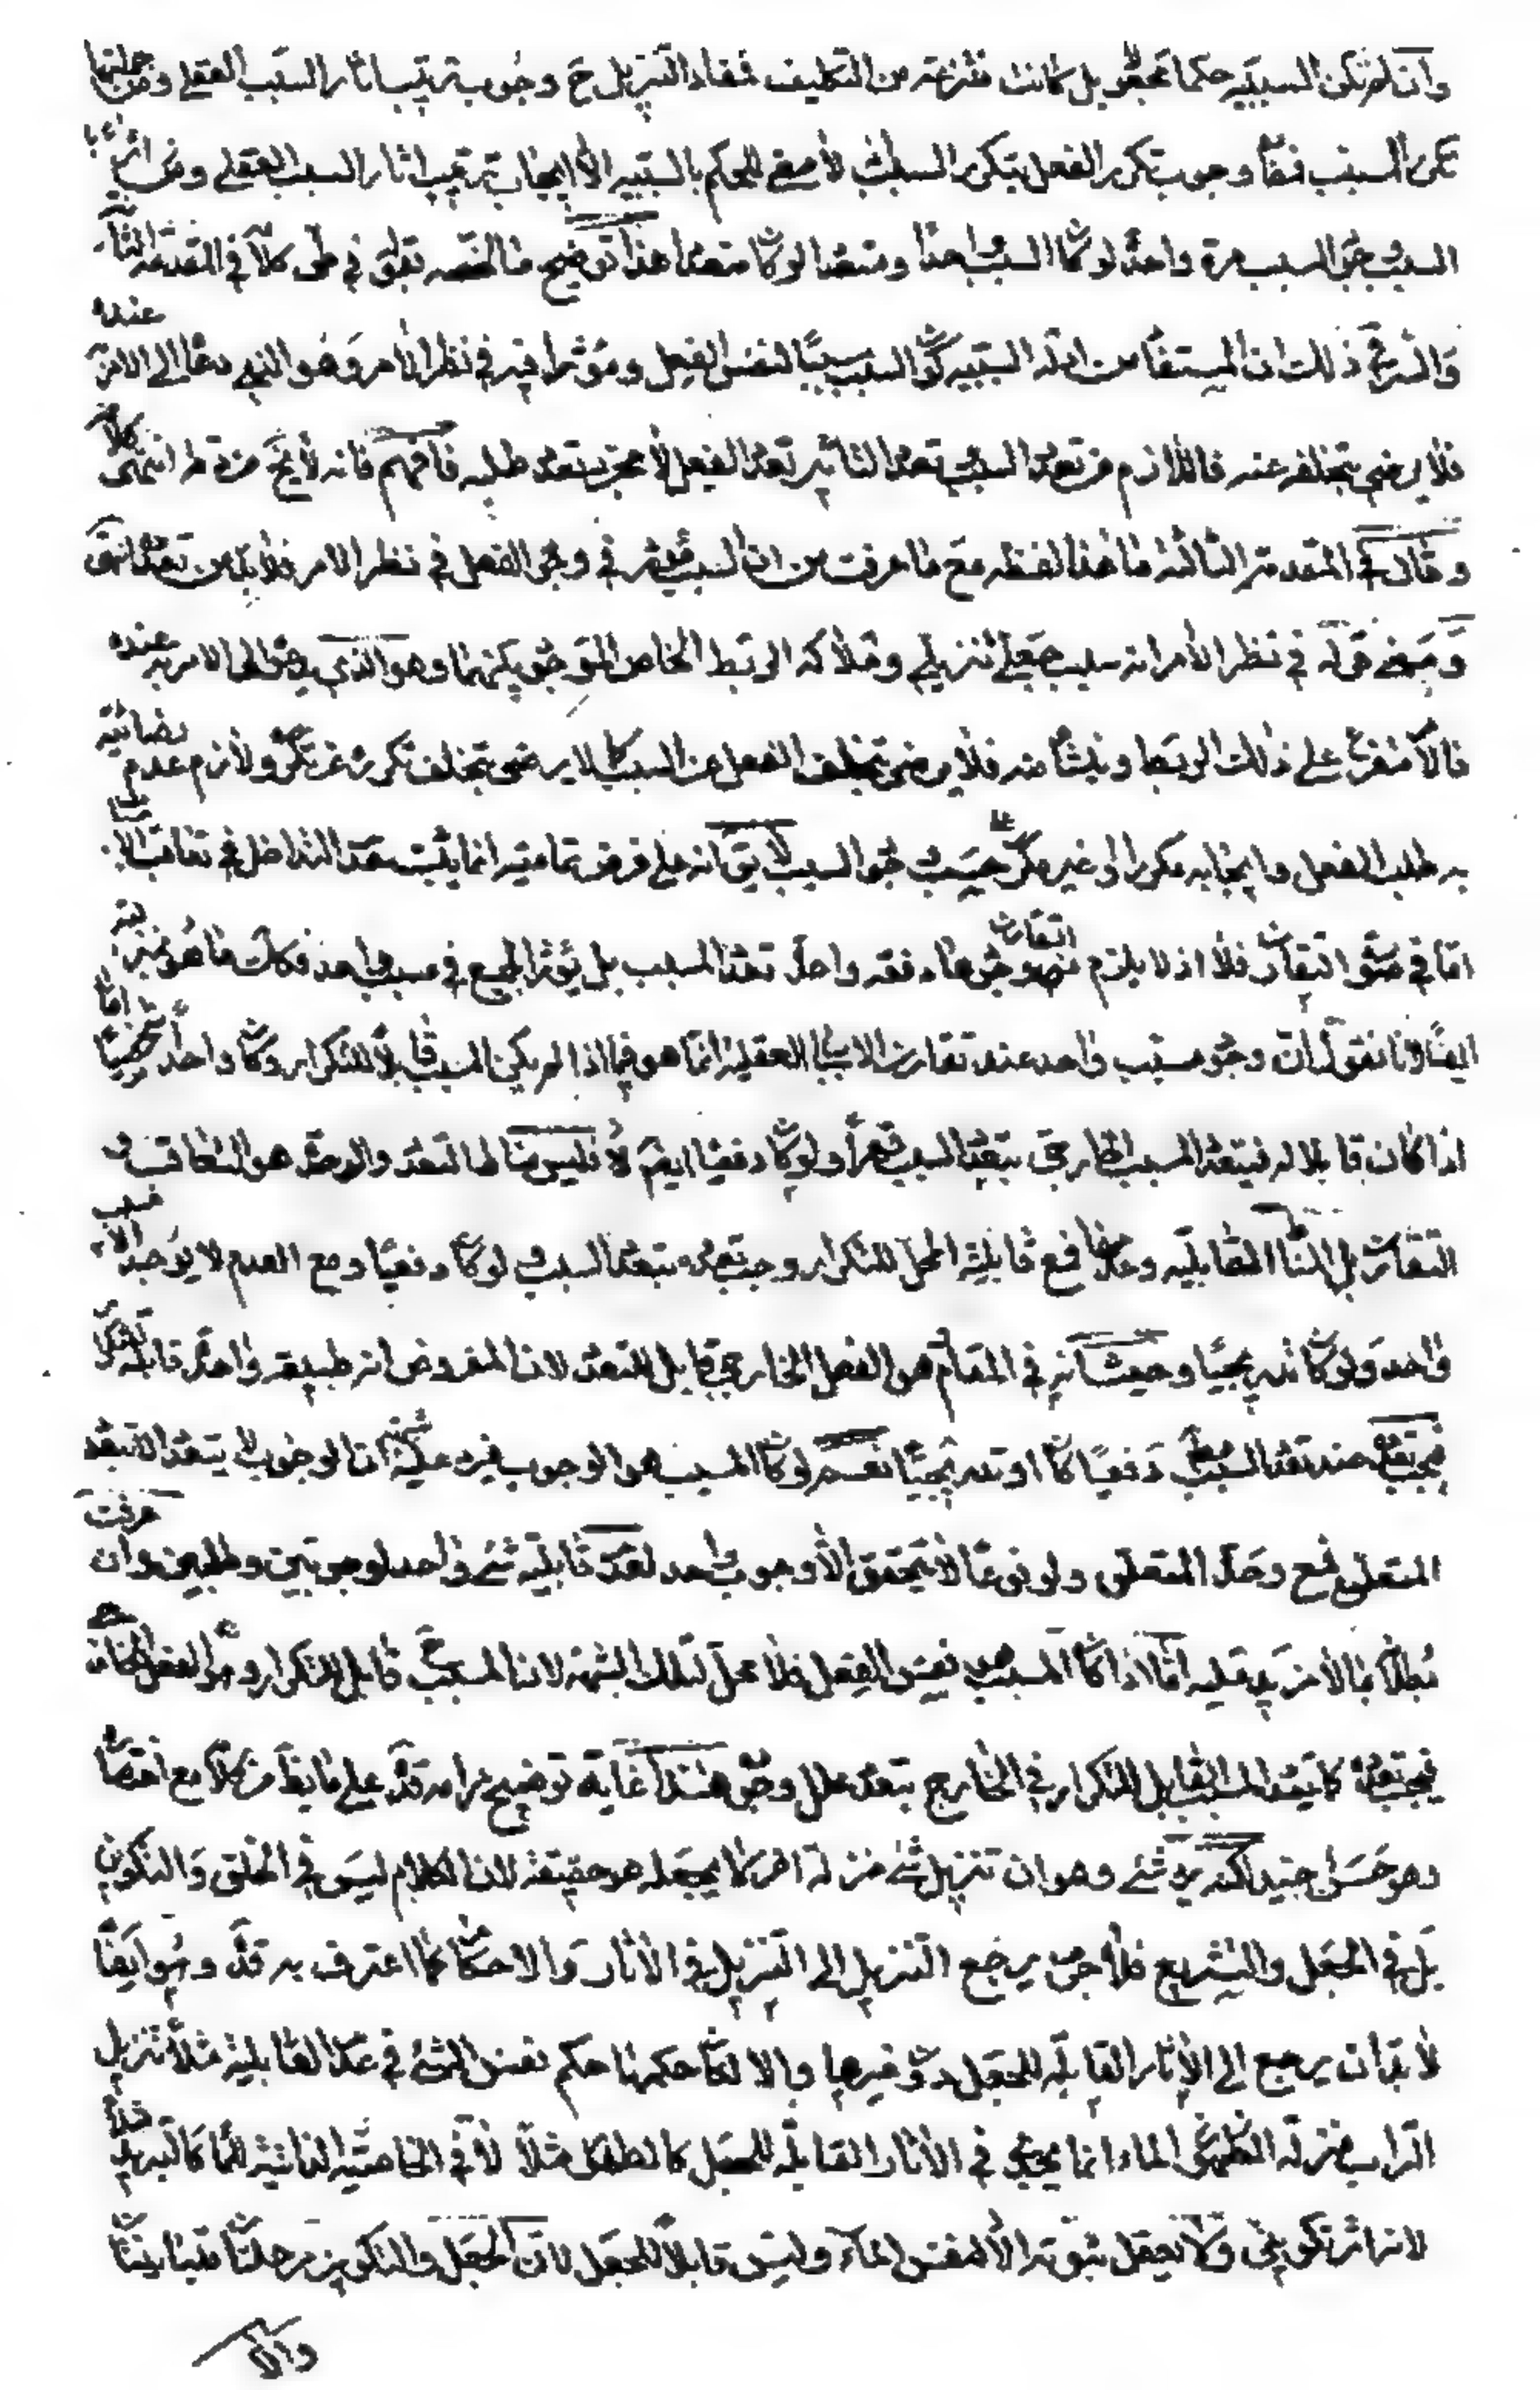 وان لم تكن السببيه حكما مجعولا بل كانت منتزعة من التكليف فمفاد التنزيل ح وجوب ترتيب اثار السبب العقلى ومن جملتها
تكرر المسبب وجوب تكرر الفعل بتكرر السبب لأ معنى للحكم بالسببيه الا ايجاب ترتيب اثار السبب العقلى ومن اثاره
السبب مرة واحدة لو كان السبب واحدا ومتعددا لو كان متعددا هذا توضيح ما لخصه في طى كلامه في المقدمة الثانية
والسر في ذلك ان المستفاد من ادلة السببيه كون السبب سببا لنفس الفعل ومؤثرا فيه في نظر الأمر وهو الذى دعا الى الامر به عنده
فلا يرضى بتخلفه عنه فاللازم من تعدد السبب تعدد التاثير تعدد الفعل لأ مجرد تعدد طلبه فافهم فانه لأ يخ من دقة انتهى كلامه
وقال في المقدمة الثالثة ما هذا لفظه مع ما عرفت من ان السبب مؤثر في وجود الفعل في نظر الامر فلا بد من تعدد
ومعنى قوله في نظر الأمر انه سبب جعلى تنزيلى وملاكه الربط الخاص الموجود بينهما وهو الذي يدعو الى الامر به عنده
فالأمر متفرع على ذلك الربط وينشأ منه فلأ يرضى بتخلف الفعل عن السبب كما لا يرضى بتخلف تكرره عن تكرره ولأزم عدم رضائه
به طلب الفعل وايجابه مكررا او غير مكرر حسب وجود السبب لأ يق انه على فرض تماميته انما يثبت عدم التداخل في تعاقب الاسباب
اما في صورة التقارن فلا اذ لا يلزم من وجودها دفعة واحدة تعدد المسبب بل يؤثر الجميع في مسبب واحد فكك ما هو بمنزلته
ايضا فانا نقول ان وجود مسبب واحد عند تقارن الاسباب العقلية انما هو فيما اذا لم يكن المسبب قابلا للتكرار وكان واحدا شخصيا اما
اذا كان قابلا له فيتعدد المسبب الخارجى بتعدد السبب قهرا ولو كان دفعيا ايضا فليس مناط التعدد والوحدة هو التعاقب و
التقارن بل المناط القابلية وعدمها فمع قابلية المحل للتكرار وجب تعدده بتعدد السبب ولو كان دفعيا ومع العدم لا يوجد الا مسبب
واحد ولو كان تدريجيا وحيث انه في المقام هو الفعل الخارجى قابل للتعدد لان المفروض انه طبيعة واحدة قابلة للتكرار
فيجب تعدده عند تعدد السبب دفعيا كان او تدريجيا نعم لو كان المسبب هو الوجوب فيرد عليه ان الوجوب لا يتعدد الا بتعدد
المتعلق فمع وحدة المتعلق ولو نوعا لأ يتحقق الأ وجوب واحد لعدم قابلية شئ واحد لوجوبين وطلبين وان عرفت
بطلانه بما لأ مزيد عليه اما اذا كان المسبب هو نفس الفعل فلا محل لتلك الشبهة لان المسبب قابل للتكرار وهو الفعل الخارجى
فيجب تعدده كما يتعدد المسبب القابل للتكرار في الخارج بتعدد علل وجوده هذا غاية توضيح مرامه قده على ما يظهر من كلامه مع اختصاره
وهو حسن جيد لكنه يرد شئ وهو ان تنزيل شئ منزلة اخر لأ يجعله هو حقيقة لان الكلام ليس في الخلق والتكوين
بل في الجعل والتشريع فلا جرم يرجع التنزيل الى التنزيل في الأثار والاحكام كما اعترف به قده وهو ايضا
لأ بد ان يرجع الى الأثار القابلة للجعل دون غيرها والا لكان حكمها حكم نفس الشئ في عدم القابلية مثلا تنزيل
التراب منزلة الماء انما يجرى في الأثار القابلة للجعل كالطهارة مثلا لأ في الخاصية الذاتية للماء كالتبريد
لانه اثر تكوينى ولأ يعقل ثبوته الأ لنفس الماء وليس قابلا للجعل لان الجعل والتكوين مرحلتان متباينتان
والا